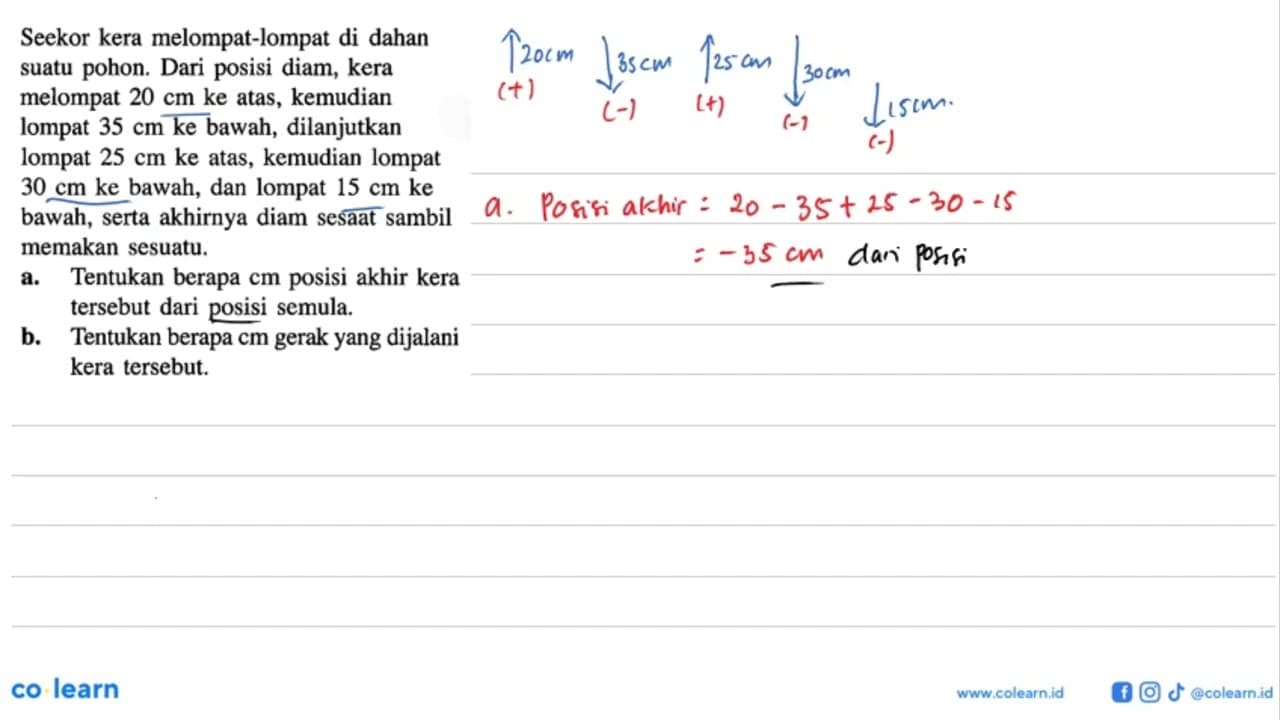 Seekor kera melompat-lompat di dahan
suatu pohon. Dari posisi diam, kera
melompat 20 cm ke atas, kemudian
lompat 35 cm ke bawah, dilanjutkan
lompat 25 cm ke atas, kemudian lompat
30 cm ke bawah, dan lompat 15 cm ke
bawah, serta akhirnya diam sesaat sambil
memakan sesuatu.
a. Tentukan berapa cm posisi akhir kera
tersebut dari posisi semula.
b. Tentukan berapa cm gerak yang dijalani
kera tersebut.
↑20cm ↓35cm ↑25cm ↓30cm ↓15cm.
(+) (-) (+) (-) (-)
a. Posisi akhir = 20 - 35 + 25 - 30 - 15
= -35 cm dari posisi
co learn
www.colearn.id @colearn.id